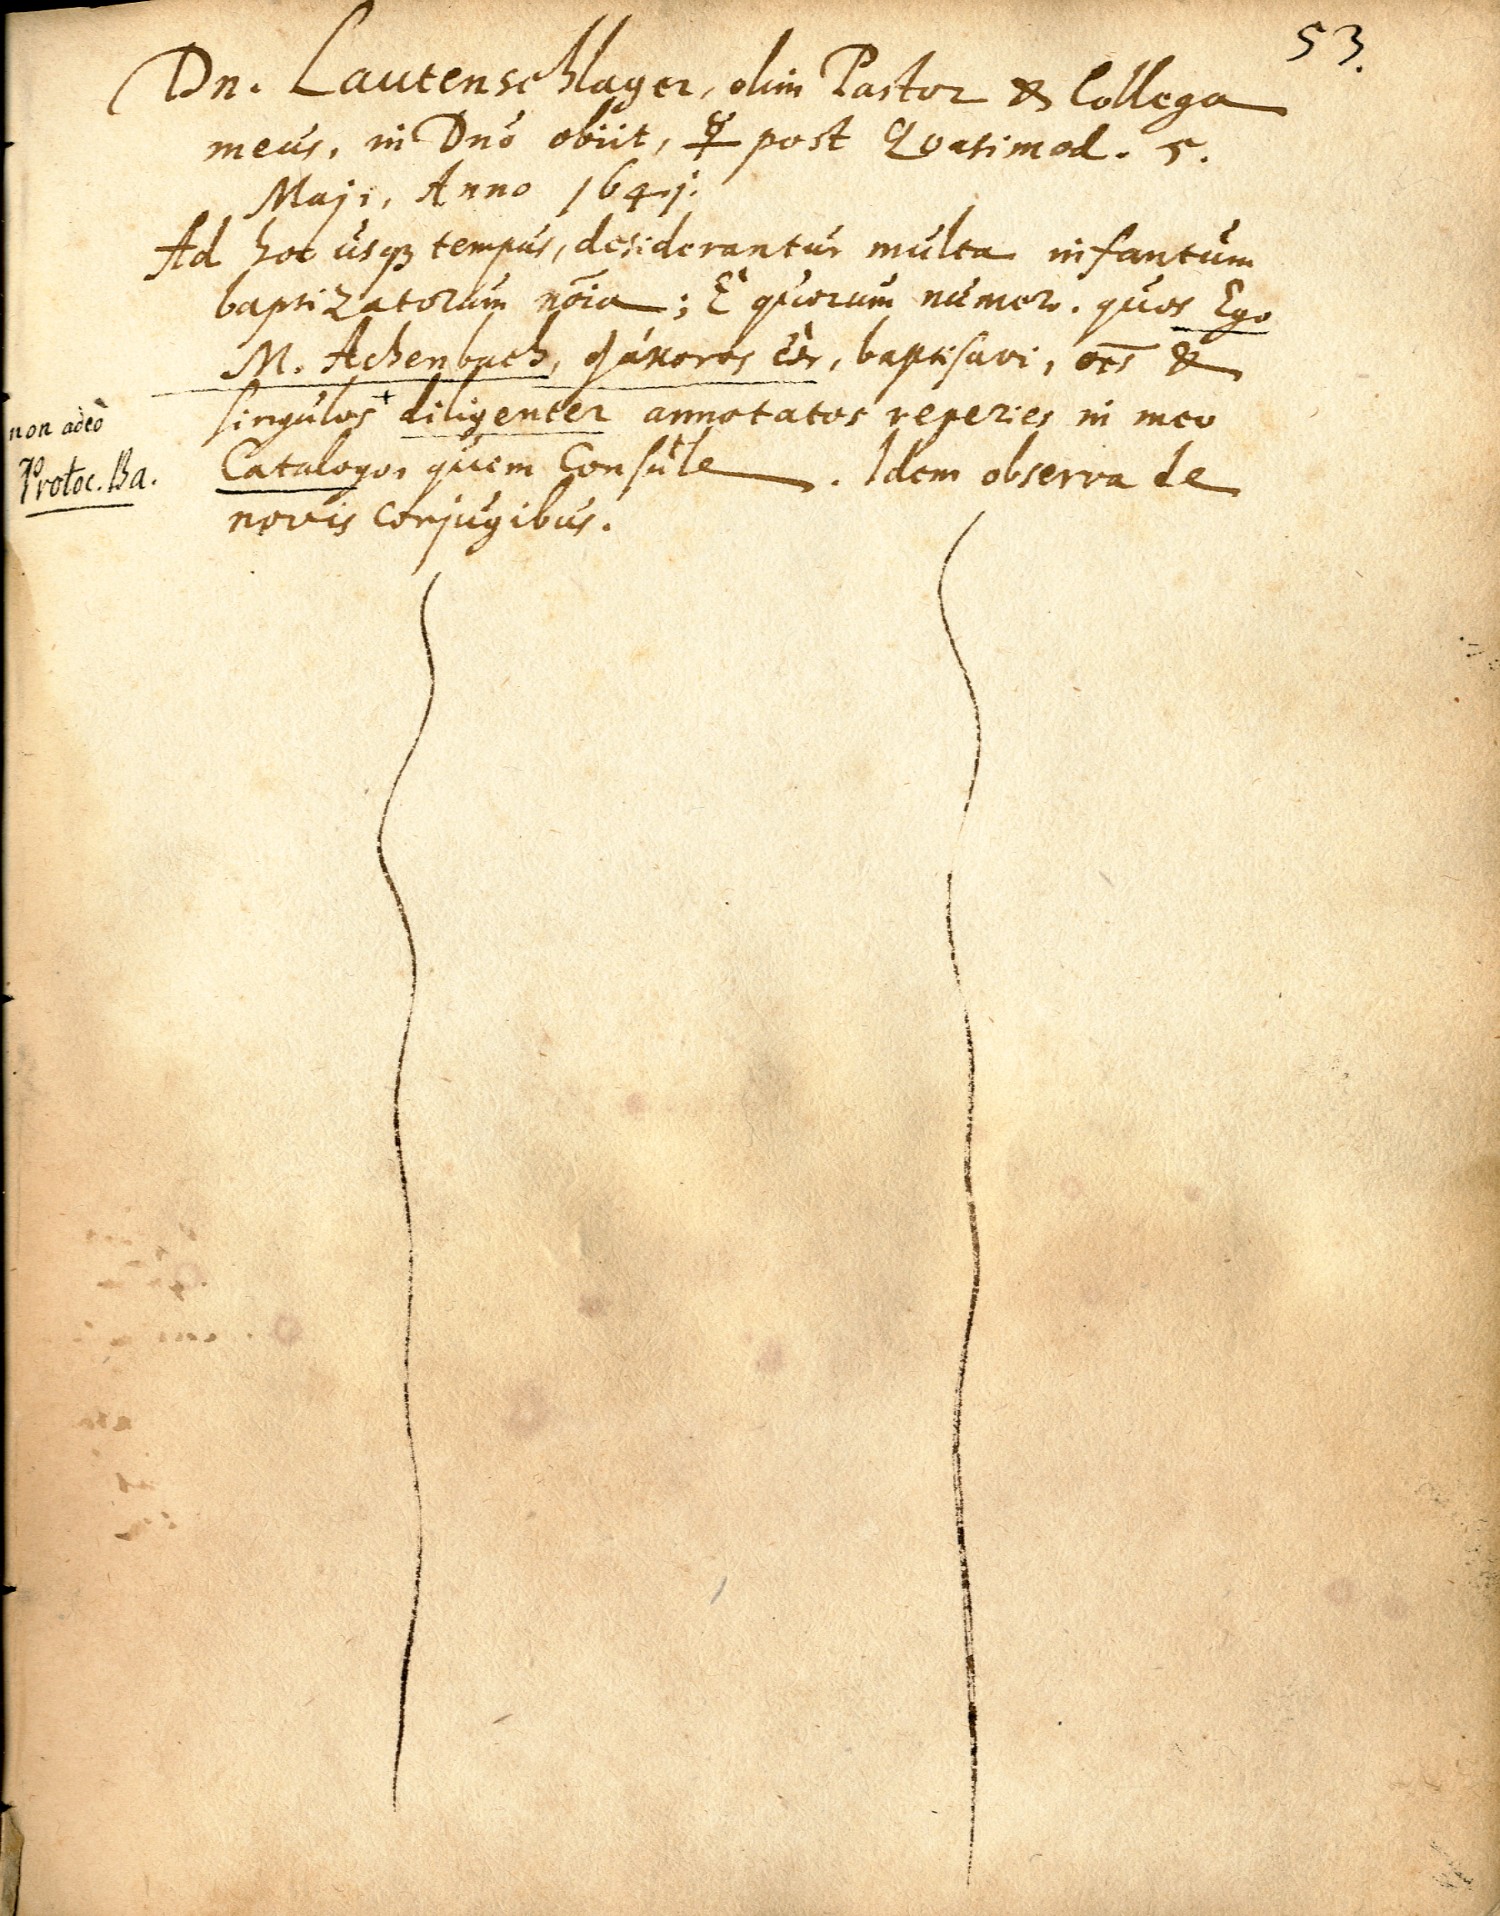 53.
Dn. Lautenschlager, olim Pastor & Collega
meus, in Dnō obiit, ☿ post Quasimod. 5.
Maji, Anno 1641.
Ad hoc usq₃ tempus, desiderantur multa infantum
baptizatorum nōia; È quorum numero. quos Ego
M. Achenbach, baptisavi, oēs &
singulos + diligenter annotatos reperies in meo
non adeò
Catalogo, quem Consule. Idem observa de
Protoc. Ba.
novis conjugibus.